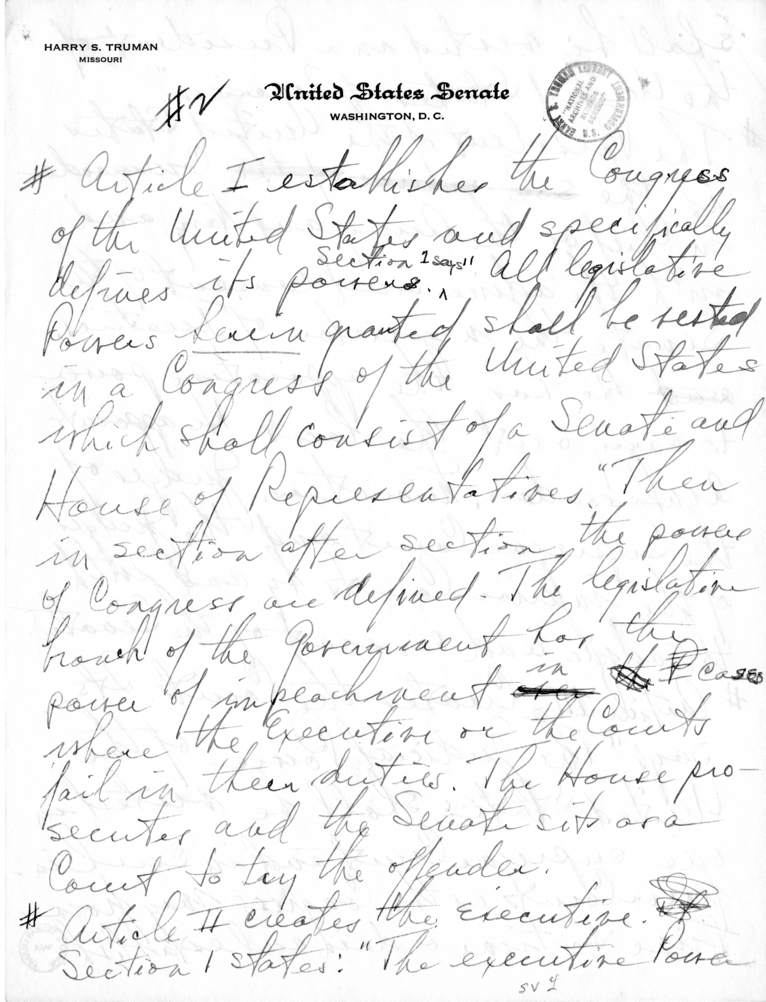 HARRY S. TRUMAN
MISSOURI
#2
United States Senate
WASHINGTON, D. C.
HARRY S. TRUMAN LIBRARY
"NATIONAL
ARCHIVES AND
RECORDS
SERVICE"
U.S.
# Article I establishes the Congress
of the United States and specifically
defines its powers. ^ Section 1 says " All legislative
Powers herein granted shall be vested
in a Congress of the United States
which shall consist of a Senate and
House of Representatives." Then
in section after section the powers
of Congress are defined. The legislative
branch of the Government has the
power of impeachment in cases
where the Executive or the Courts
fail in their duties. The House pro-
secutes and the Senate sits as a
Court to try the offender.
# Article II creates the Executive.
Section 1 states: "The executive Power